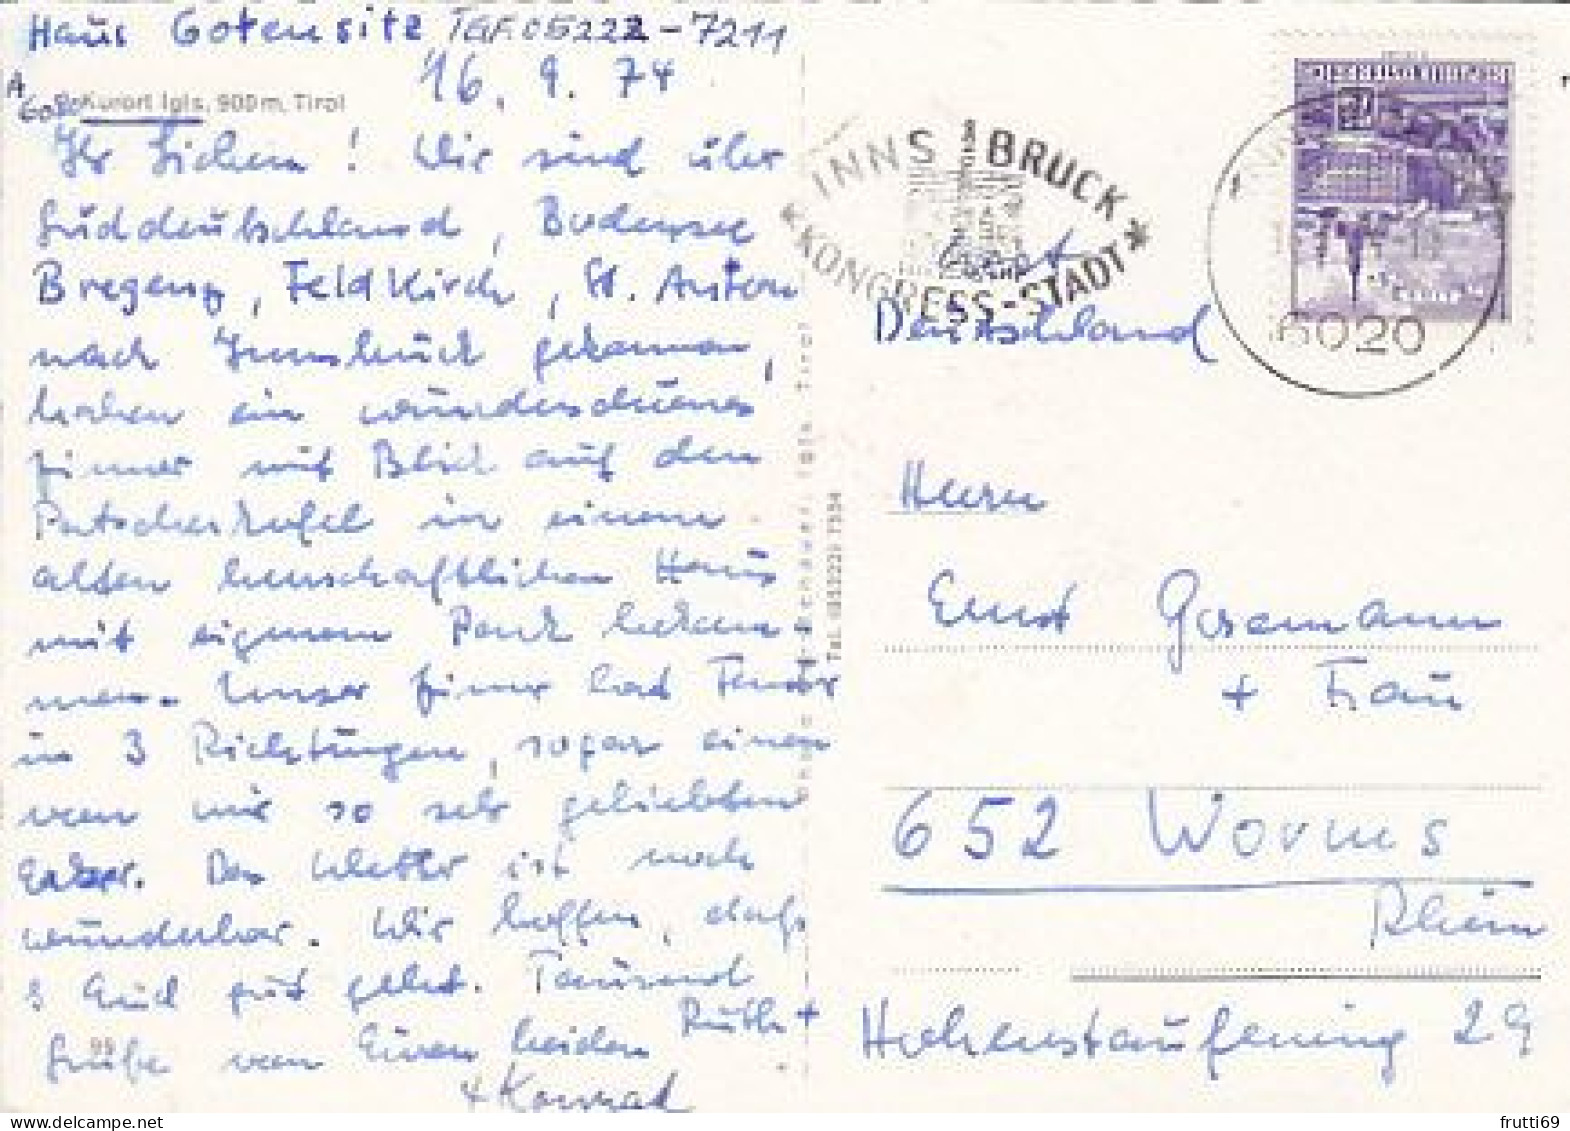 Haus Gotensitz Tel. 05222-7211
16. 9. 74
A
6080 Kurort Igls, 900m, Tirol
Ihr Lieben! Wir sind über
Süddeutschland, Bodensee
Bregenz, Feldkirch, St. Anton
nach Innsbruck gekommen,
haben ein wunderschönes
Zimmer mit Blick auf den
Patscherkofel in einem
alten herrschaftlichen Haus
mit eigenem Park bekom-
men. Unser Zimmer hat Fenster
in 3 Richtungen, sogar einen
von mir so sehr geliebten
Erker. Das Wetter ist noch
wunderbar. Wir hoffen, daß
s Euch gut geht. Tausend
Grüße von Euren beiden Ruth +
+ Konrad
99
Tel. 05222 7354
INNSBRUCK
KONGRESS-STADT
REPUBLIK ÖSTERREICH
6020
Deutschland
Herrn
Ernst
+ Frau
652 Worms
Rhein
Hohenstaufenring 29
frutti69